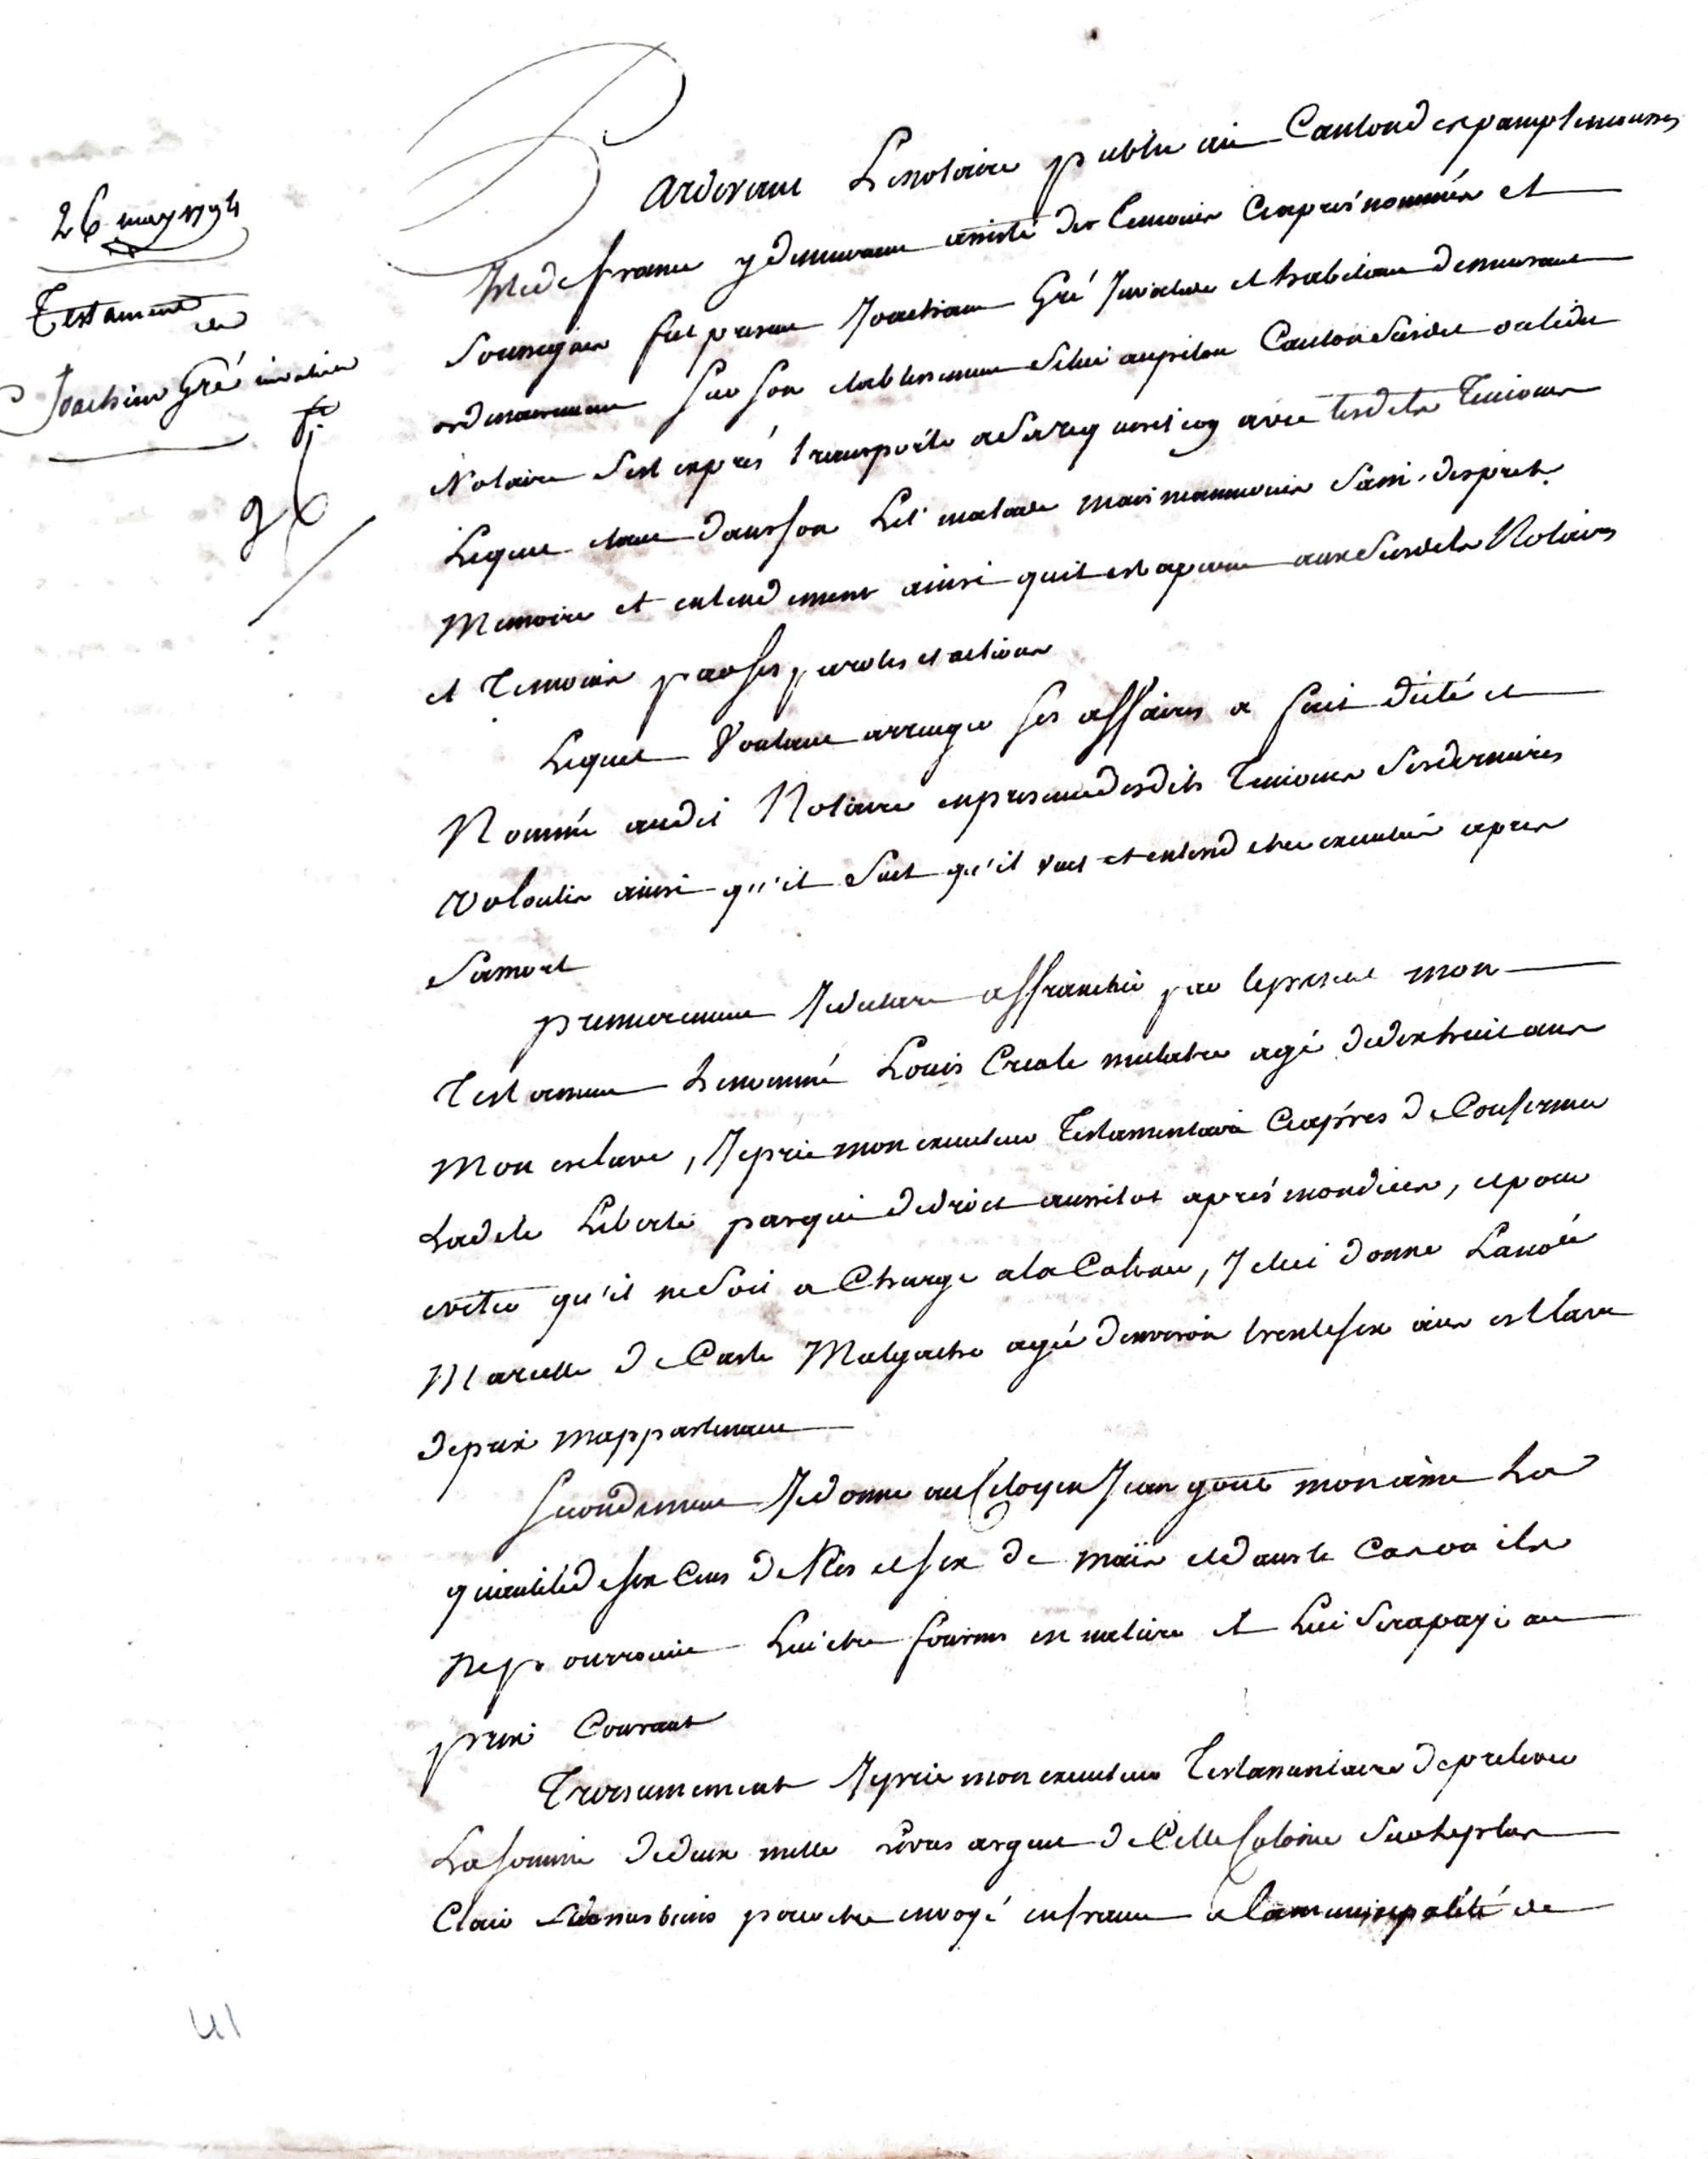 26 may 1794
Testament
de
Joachim Gré invalide
Pardevant Le notaire public au Canton des pamplemousses
Isle de france y demeurant assisté des temoins Ciaprés nommés et
Soussignés fut present Joachim Gré Invalide et habitant demeurant
ordinairement sur son etablissement audit Canton led.
Notaire s'est exprés transporté a sa requisition avec lesdits Temoins
Lequel etant dans son Lit malade mais neanmoins Sain desprit
Memoire et entendement ainsi quil est aparu auxdits Notaire
et Temoins par ses paroles et actions
Lequel Voulant arranger ses affaires a fait dicté et
Nommé audit Notaire en presence desdits Temoins ses dernieres
volontés ainsi qu'il Suit qu'il veut et entend etre executée apres
Sa mort
premierement Je declare affranchir par le present mon
Testament Le nommé Louis Creole mulatre agé de dix huit ans
Mon esclave, Je prie mon executeur Testamentaire Ciaprés de Confirmer
Ladite Liberté par qui de droit aussitot aprés mon deces, et pour
eviter qu'il ne Soit a Charge a la Colonie, Je lui donne Lanoée
Marcelle de Caste Malgache agé d'environ trente six ans esclave
de prix m'appartenant
Secondement Je donne au Citoyen Jean goué mon aime La
quantité de six Cens de Ris et six de maïs et dans le Cas ou ils
ne pourroient Lui etre fournis en nature il Lui Sera payé au
prix Courant
Troisiemement Je prie mon executeur Testamentaire de prelever
La Somme de deux mille Livres argent de Cette Colonie Sur le plus
Clair de mes biens pour etre envoyé en france a la municipalité de
41